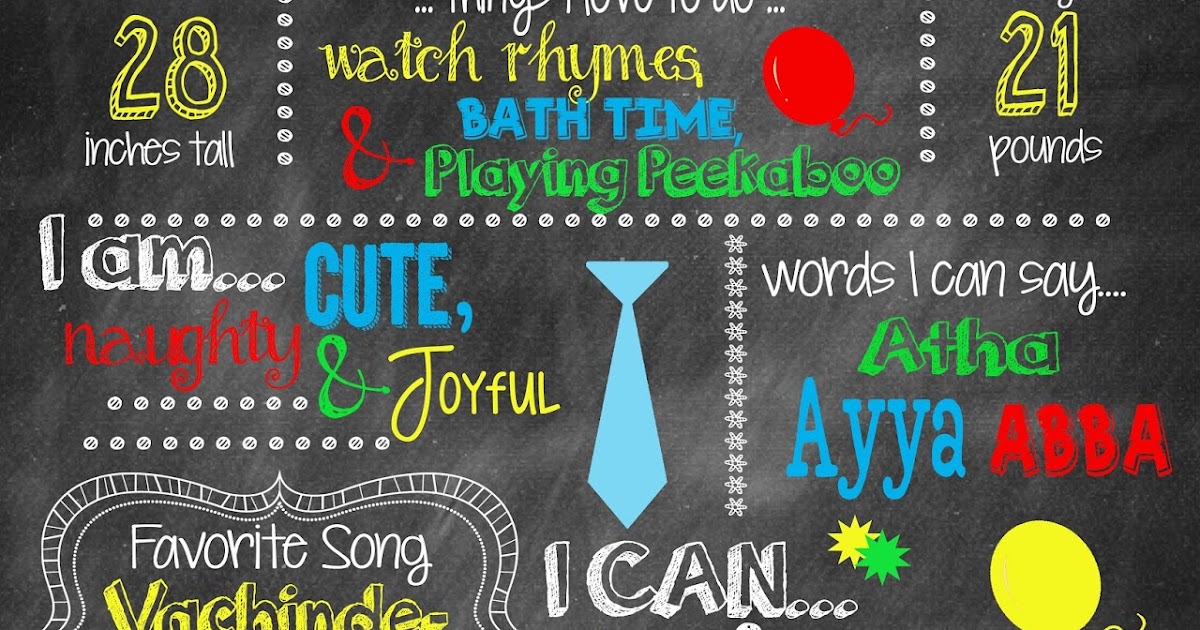 ... Things I love to do ...
28
inches tall
watch rhymes,
BATH TIME,
& Playing Peekaboo
21
pounds
I am...
naughty
CUTE,
& Joyful
words I can say....
Atha
Ayya ABBA
Favorite Song
Vachinde-
I CAN...